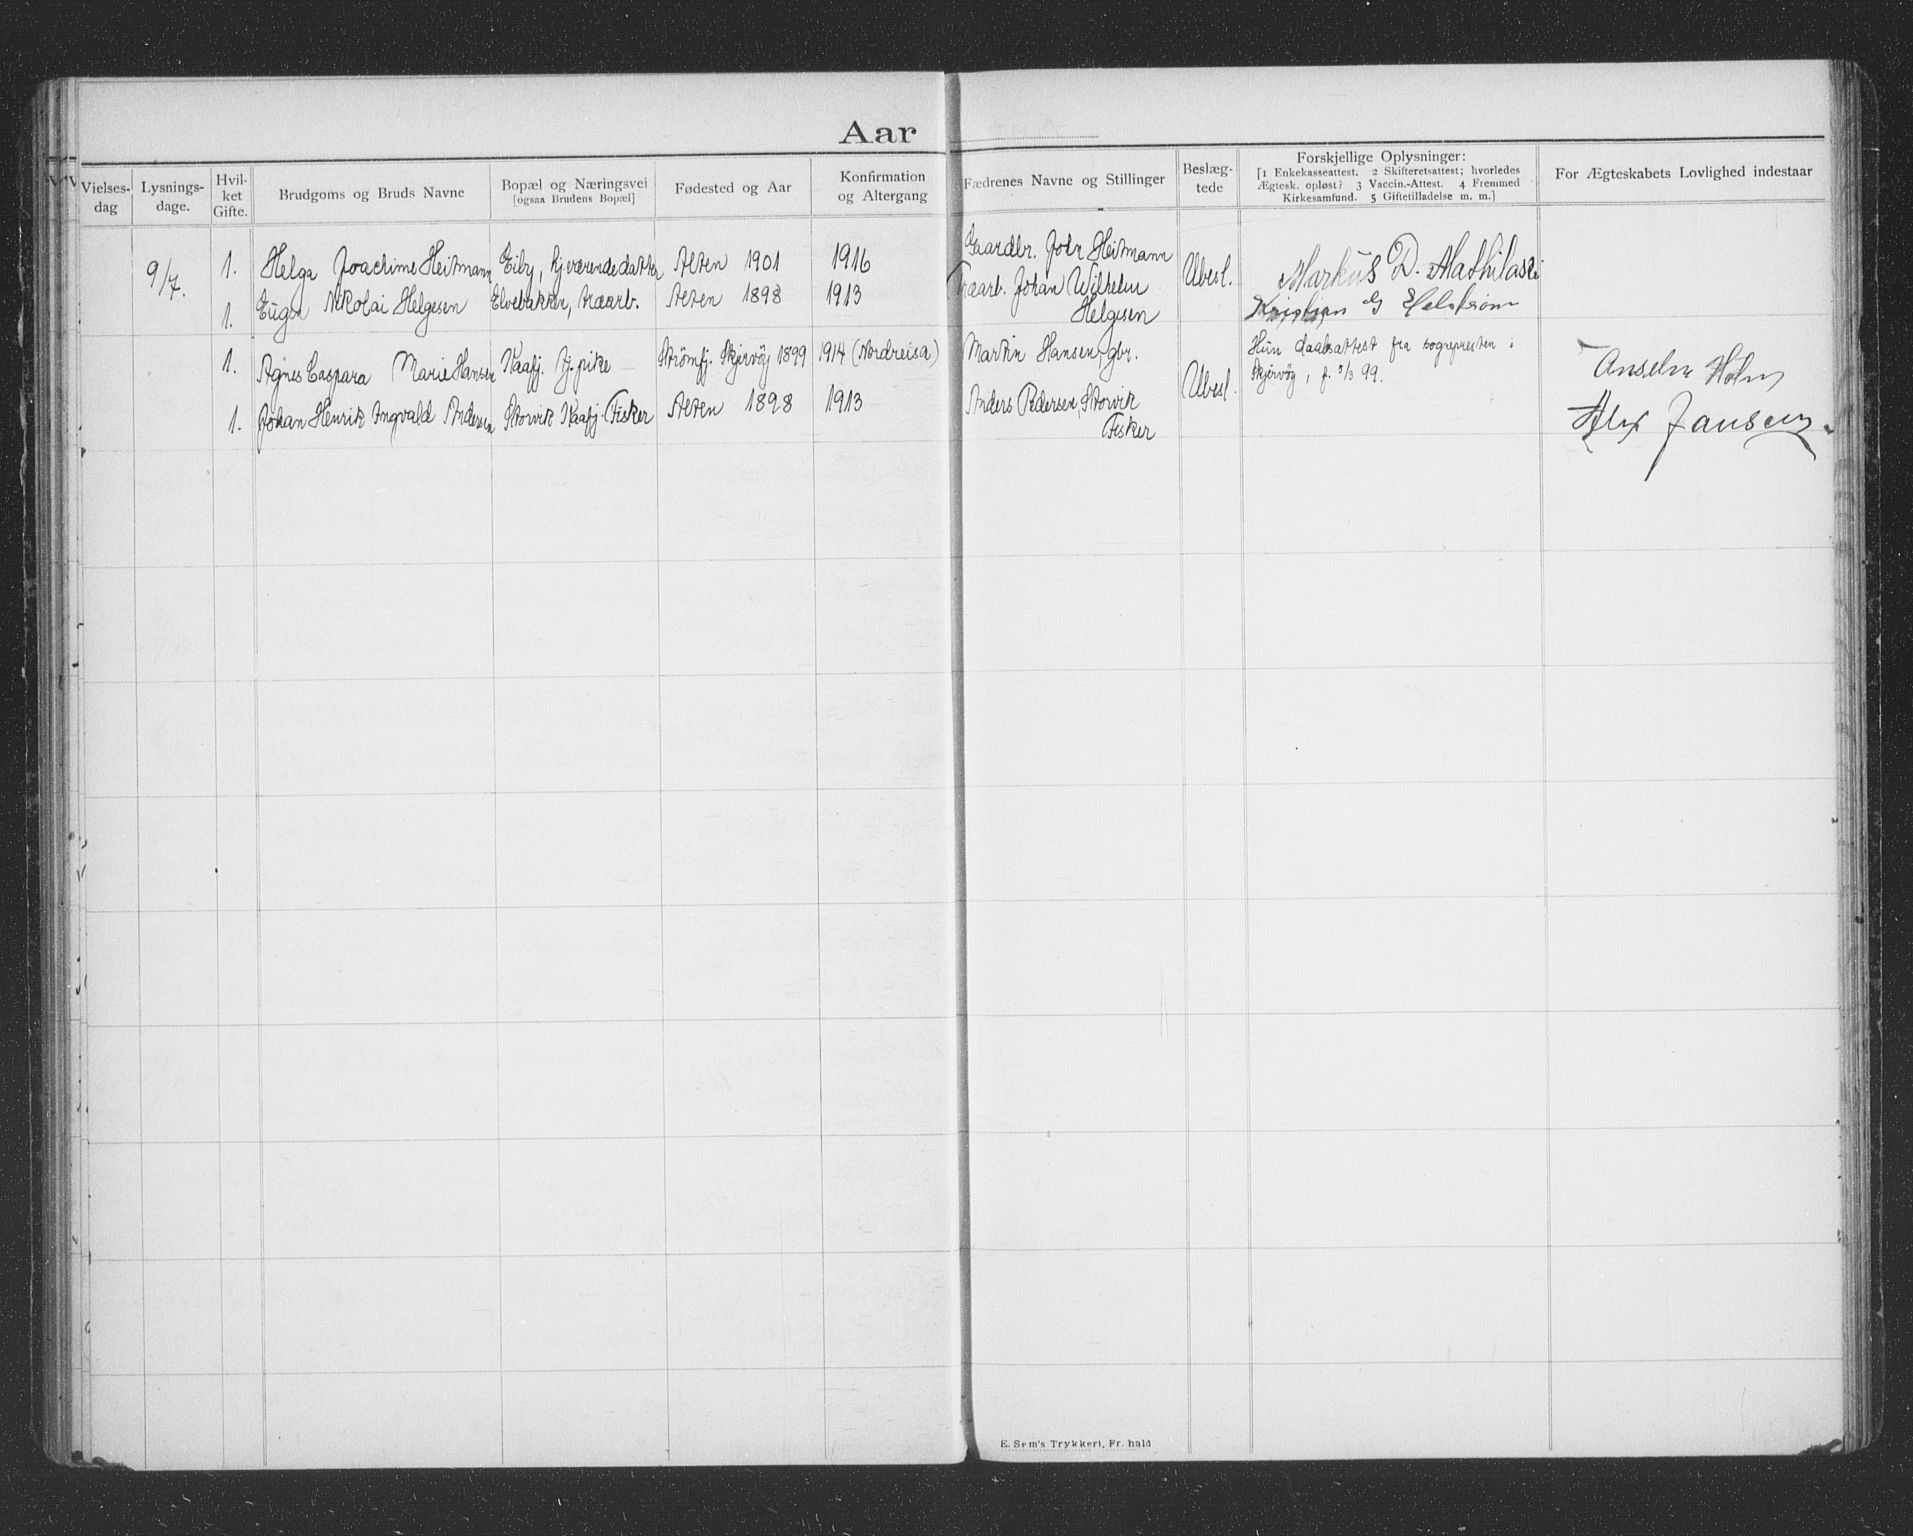 Aar
Vielses-
dag
Lysnings-
dage.
Hvil-
ket
Gifte.
Brudgoms og Bruds Navne
Bopæl og Næringsvei
[ogsaa Brudens Bopæl]
Fødested og Aar
Konfirmation
og Altergang
Fædrenes Navne og Stillinger
Beslæg-
tede
Forskjellige Oplysninger:
[1 Enkekasseattest. 2 Skifteretsattest; hvorledes
Ægtesk. opløst? 3 Vaccin.-Attest. 4 Fremmed
Kirkesamfund. 5 Giftetilladelse m. m.]
For Ægteskabets Lovlighed indestaar
9/7. 1. Helga Joachime Heitmann Eiby, hjværende datter Alten 1901 1916 Gaardbr. John Heitmann Ubesl. Markus D. Mathilassi
1. Eugen Nikolai Helgesen Elvebakken, Aaarb. Alten 1898 1913 Johan Wilhelm
Helgesen
Kristian G Helstrøm
1. Agnes Caspara Marie Hansen Kaafj. Tj. pike Strömfj. Skjervöy 1899 1914 (Nordreisa) Martin Hansen, gbr. Ubesl.
Hun daabsattest fra sognepresten i
Skjervöy, f. 5/3 99.
Anselm Holm
1. Johan Henrik Ingvald Andersen Storvik Kaafj. Fisker Alten 1898 1913 Anders Pedersen, Storvik
Fisker
Alex Jansen
E. Sem's Trykkeri, Fr.hald